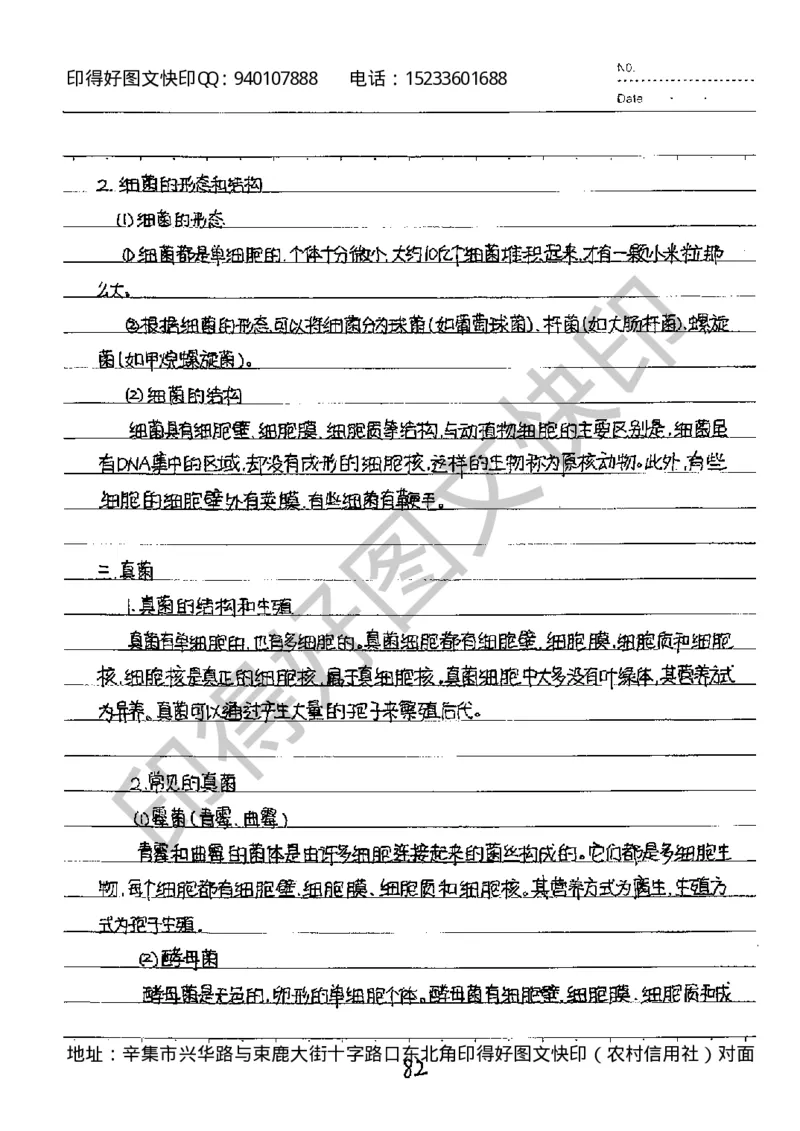 印得好图文快印QQ：940107888 电话：15233601688
No.
Date
2. 细菌的形态和结构
(1)细菌的形态
①细菌都是单细胞的、个体十分微小、大约10亿个细菌堆积起来,才有一颗小米粒那
么大。
②根据细菌的形态,可以将细菌分为球菌(如葡萄球菌)、杆菌(如大肠杆菌)、螺旋
菌(如甲烷螺旋菌)。
(2)细菌的结构
细菌具有细胞壁、细胞膜、细胞质等结构,与动植物细胞的主要区别是,细菌虽
有DNA集中的区域,却没有成形的细胞核,这样的生物称为原核动物。此外,有些
细胞的细胞壁外有荚膜、有些细菌有鞭毛。
三.真菌
1.真菌的结构和生殖
真菌有单细胞的,也有多细胞的。真菌细胞都有细胞壁、细胞膜、细胞质和细胞
核、细胞核是真正的细胞核,属于真细胞核,真菌细胞中大多没有叶绿体,其营养方式
为异养。真菌可以通过产生大量的孢子来繁殖后代。
2.常见的真菌
(1)霉菌(青霉、曲霉)
青霉和曲霉的菌体是由许多细胞连接起来的菌丝构成的。它们都是多细胞生
物,每个细胞都有细胞壁、细胞膜、细胞质和细胞核。其营养方式为腐生,生殖方
式为孢子生殖.
(2)酵母菌
酵母菌是无色的,卵形的单细胞个体。酵母菌有细胞壁、细胞膜、细胞质和成
地址：辛集市兴华路与束鹿大街十字路口东北角印得好图文快印（农村信用社）对面
82
印得好图文快印